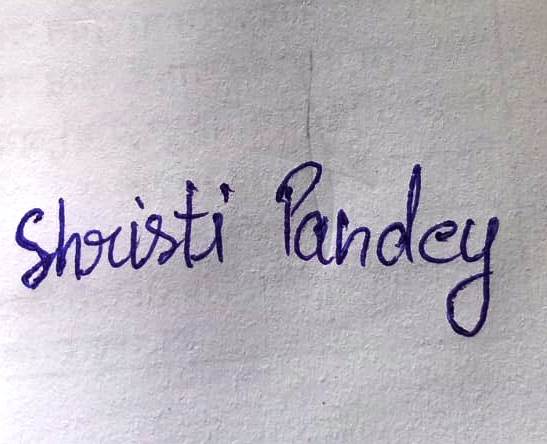 Shristi Pandey